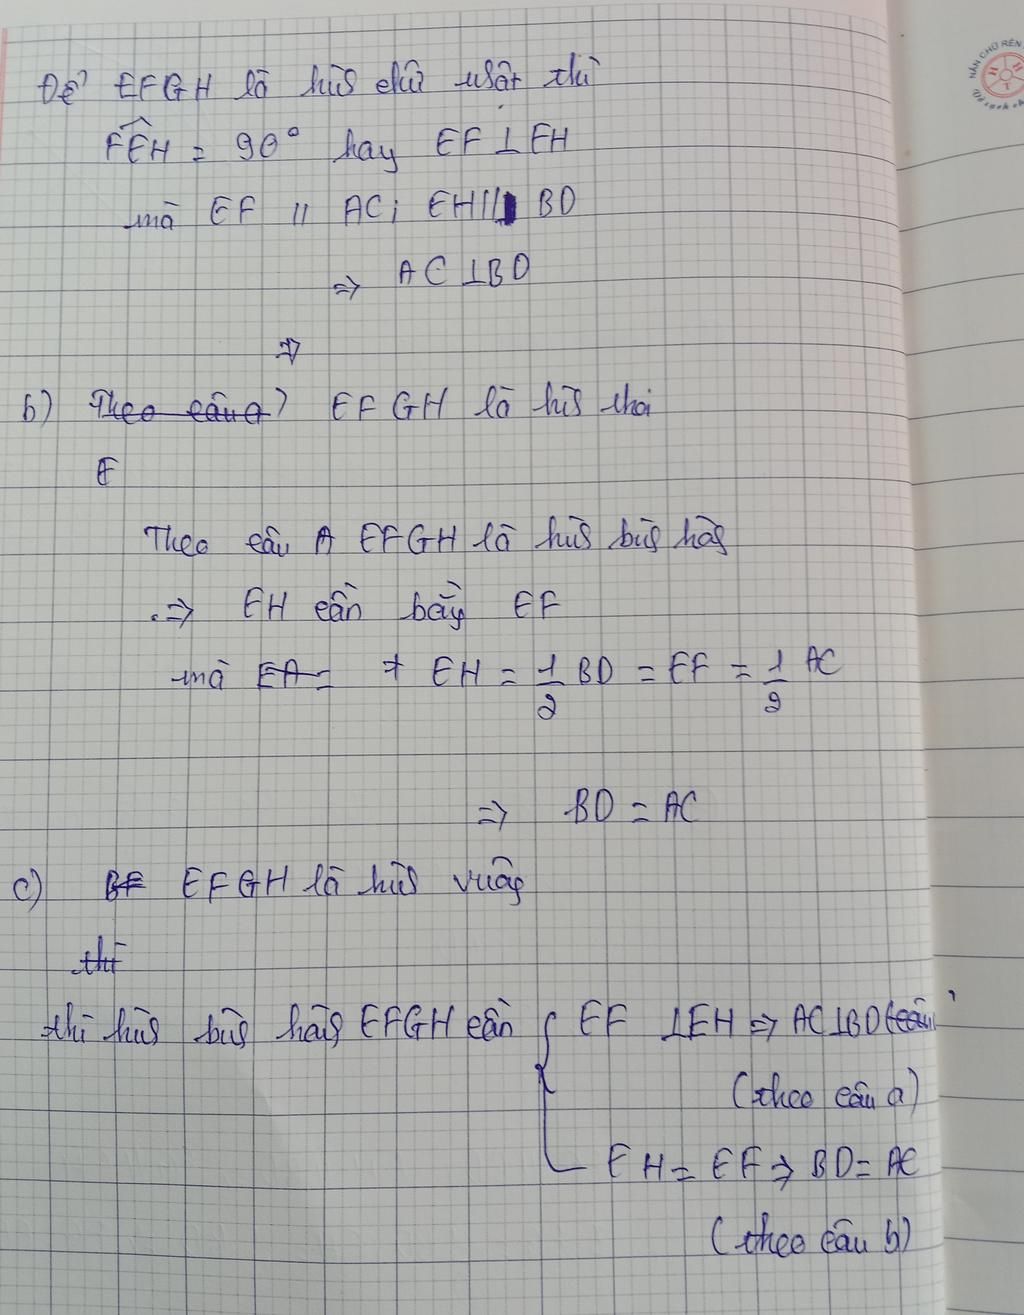 Để EFGH là hình chữ nhật thì
FÊH = 90° hay EF ⊥ EH
mà EF // AC; EH // BD
=> AC ⊥ BD
=>
b) Theo câu a) EFGH là hình thoi
E
Theo câu A EFGH là hình bình hành
=> EH cần bằng EF
mà EA = + EH = 1/2 BD = EF = 1/2 AC
=> BD = AC
c) BF EFGH là hình vuông
thì
thì hình bình hành EFGH cần { EF ⊥ EH => AC ⊥ BD (câu
(theo câu a)
EH = EF => BD = AC
(theo câu b)